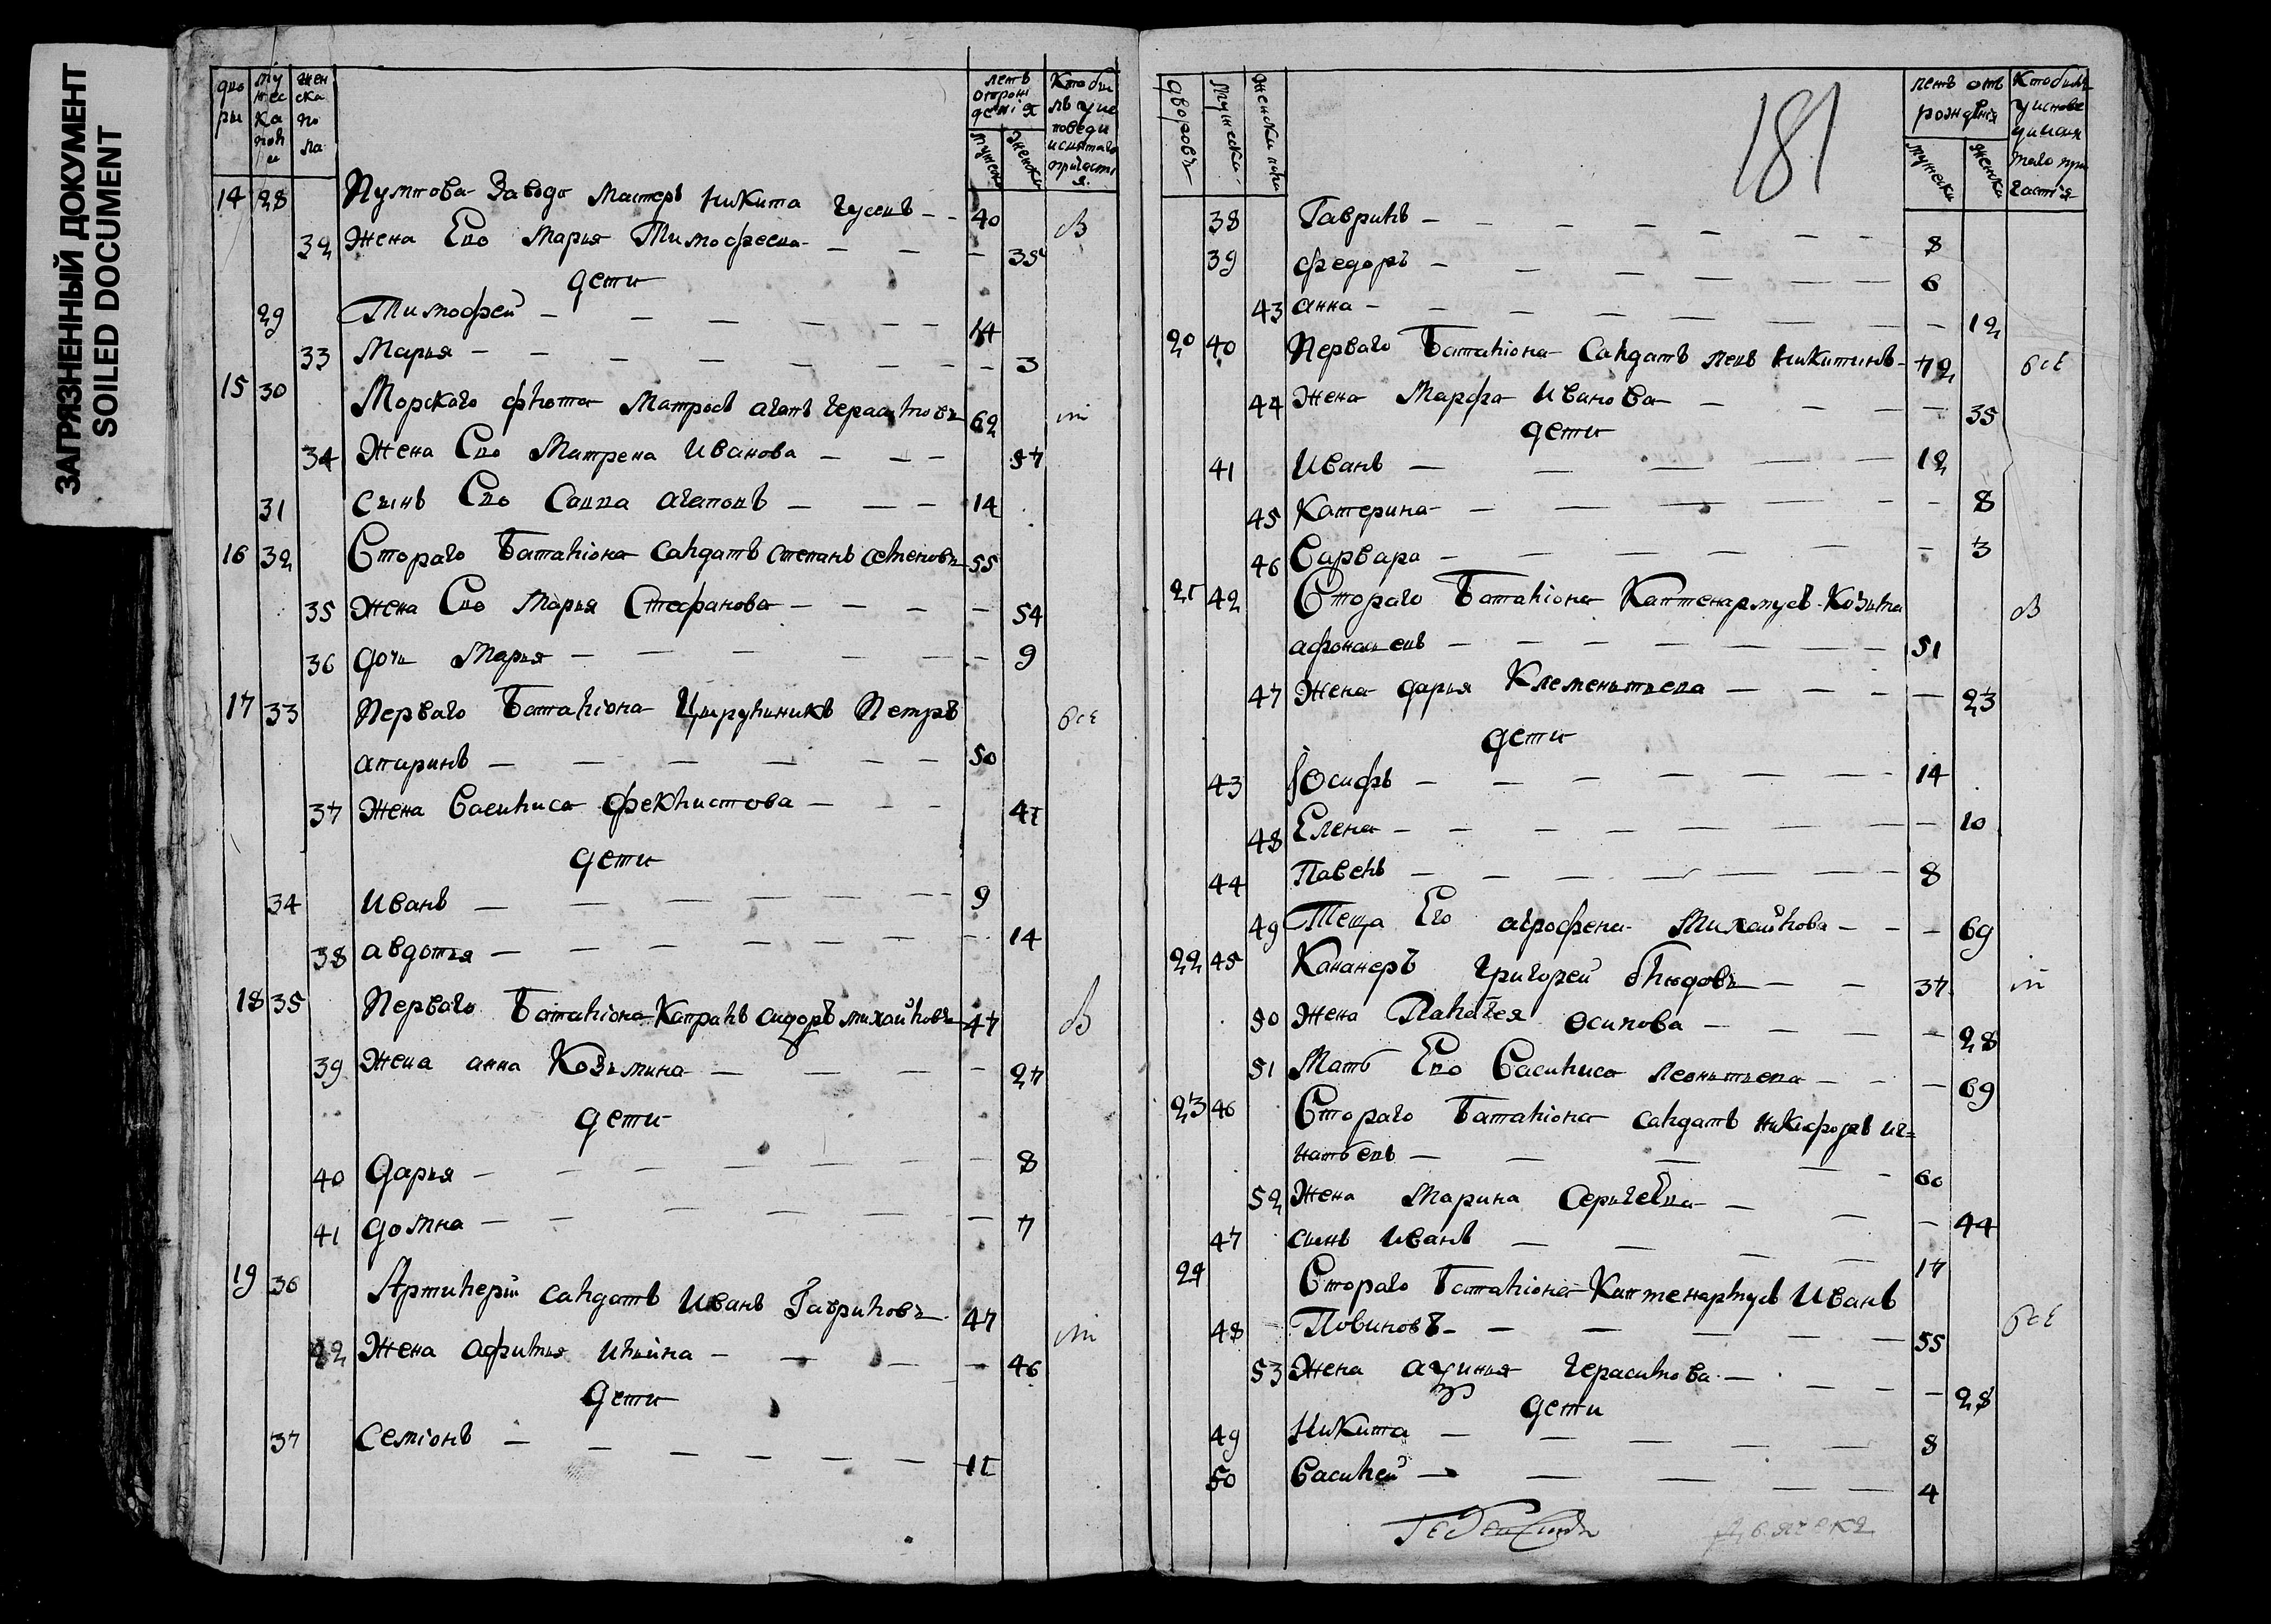 ЗАГРЯЗНЕННЫЙ ДОКУМЕНТ
SOILED DOCUMENT
14 28 Пумпова Завода мастеръ никита гусевъ 40
32 Жена Ево Марья Тимофеева 35
дети
29 Тимофей 14
33 Марья 3
15 30 Морскаго флота матросъ агапъ герасимовъ 62
34 Жена Ево Матрена Иванова 57
31 сынъ Ево Савва агаповъ 14
16 32 Втораго Баталіона салдатъ степанъ семеновъ 55
35 Жена Ево Марья Стефанова 54
36 дочь Марья 9
17 33 Перваго Баталіона Цырульникъ Петръ все
апиринъ 50
37 Жена Василиса феклистова 47
дети
34 Иванъ 9
38 авдотья 14
18 35 Перваго Баталіона Капралъ сидоръ михайловъ 47
39 Жена анна Козьмина 27
дети
40 дарья 8
41 домна 7
19 36 Артилерій салдатъ Иванъ Гавриловъ 47
42 Жена афимья ильина 46
дети
37 Семіонъ 11
181
дворовъ мужеска женска пола летъ отъ рожденія мужеска женска
38 Гаврилъ 8
39 федоръ 6
43 анна 12
20 40 Перваго Баталіона Салдатъ левъ никитинъ 42 все
44 Жена Марфа Иванова 35
дети
41 Иванъ 12
45 Катерина 8
46 Варвара 3
21 42 Втораго Баталіона Каптенармусъ Козьма
афонасьевъ 51
47 Жена дарья Клеменьтьева 23
дети
43 Іосифъ 14
48 Елена 10
44 Павелъ 8
49 Теща Его агрофена Михайлова 69
22 45 Кананеръ григорей блюдовъ 37
50 Жена Палагея осипова 28
51 Мать Ево Василиса леоньтьева 69
23 46 Втораго Баталіона салдатъ никифоръ иг=
натьевъ 60
52 Жена Марина Сергеевна 44
47 сынъ Иванъ 17
24 Втораго Баталіона Каптенармусъ Иванъ
48 Повиновъ 55 все
53 Жена аксинья герасимова 28
дети
49 Никита 8
50 Василей 4